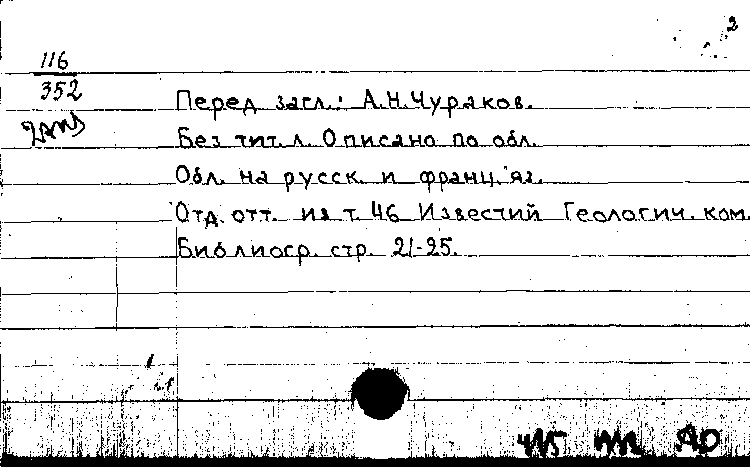 2
116
352
Перед загл.: А.Н.Чураков.
Без тит. л. Описано по обл.
Обл. на русск. и франц. яз.
Отд. отт. из т. 46 Известий Геологич. ком.
Библиогр. стр. 21-25.